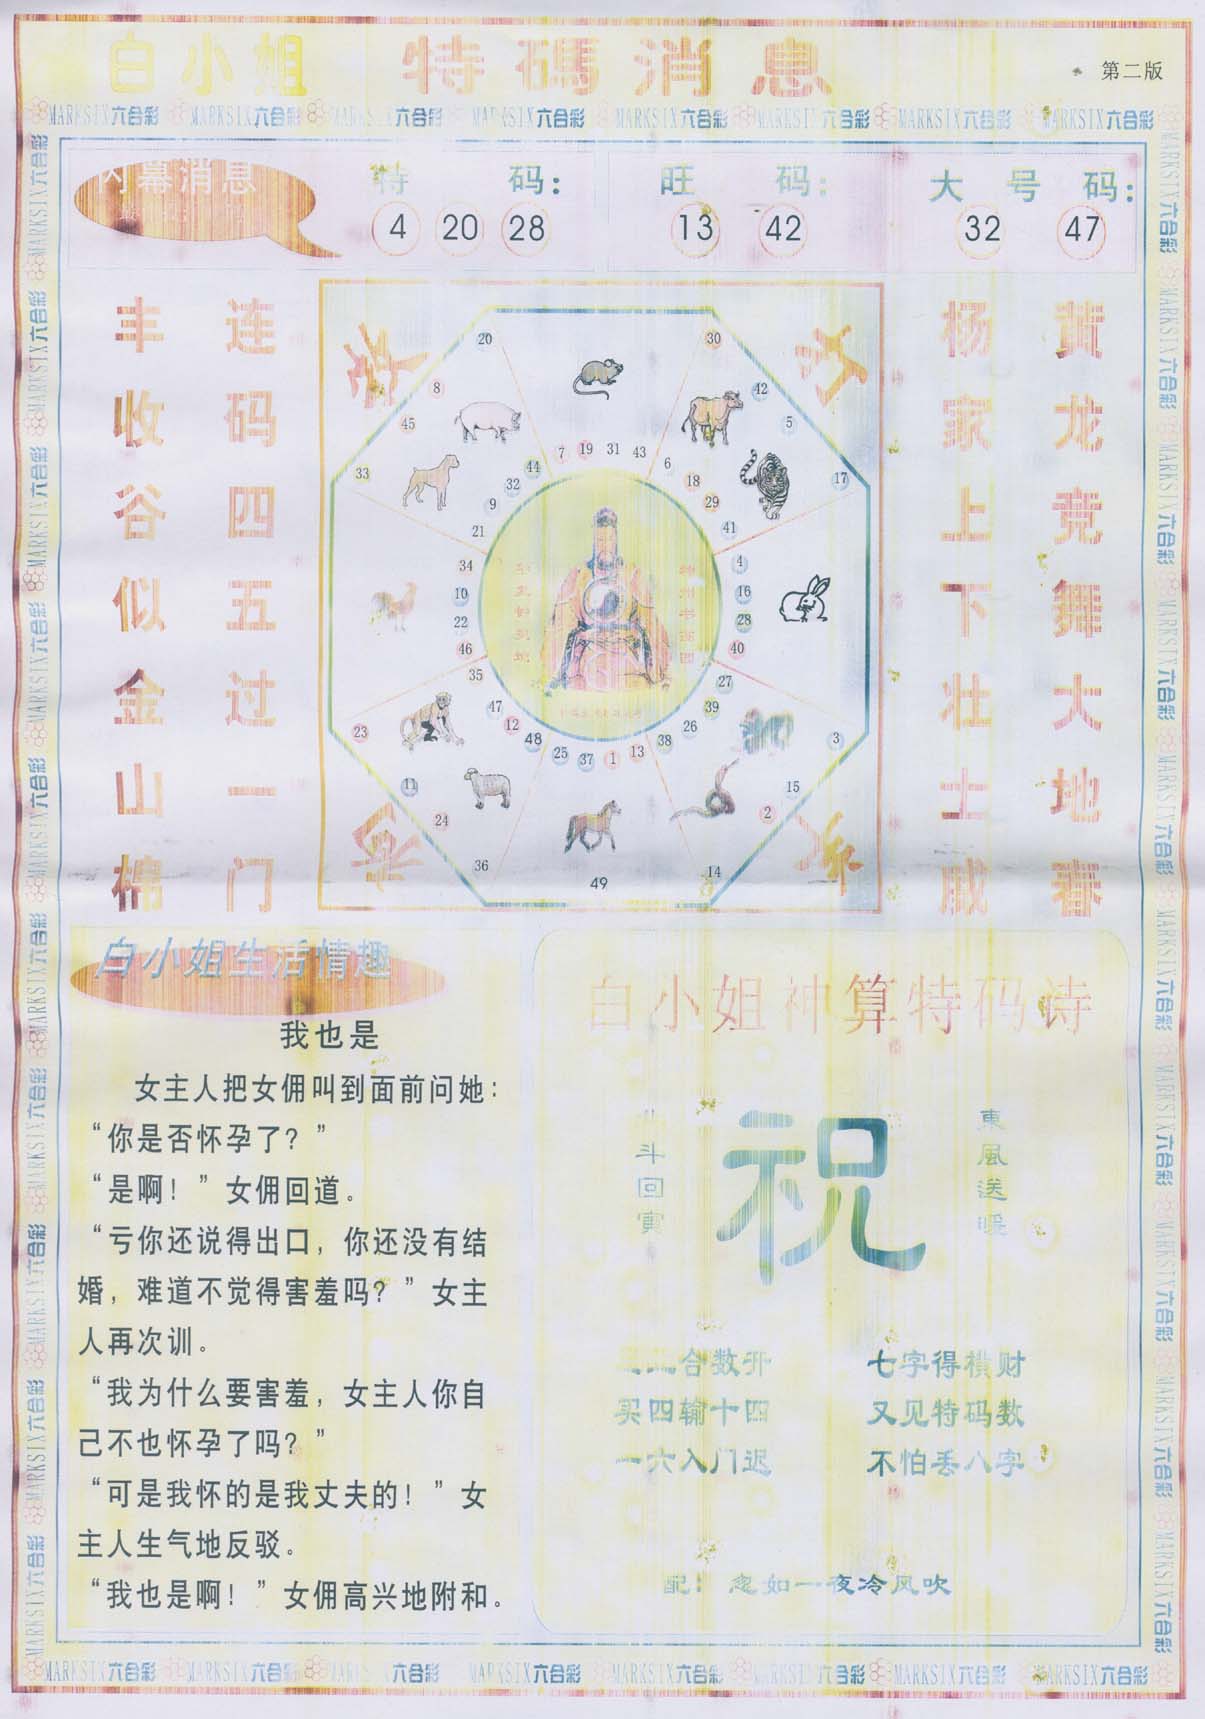 白小姐 特碼消息
第二版
MARKSIX六合彩 MARKSIX六合彩 MARKSIX六合彩 MARKSIX六合彩 MARKSIX六合彩 MARKSIX六合彩 MARKSIX六合彩 MARKSIX六合彩
内幕消息
特 码：
4 20 28
旺 码：
13 42
大 号 码：
32 47
丰收谷似金山棉
连码四五过一门
杨家上下壮士威
黄龙竞舞大地春
20
8
45
33
44
32
9
21
7 19 31 43
30
42
5
17
6
18
29
41
34
10
22
46
4
16
28
40
35
47
12
48
23
11
24
36
25 37 1 13
49
27
39
26
38
3
15
2
14
白小姐生活情趣
我也是
女主人把女佣叫到面前问她：
“你是否怀孕了？”
“是啊！”女佣回道。
“亏你还说得出口，你还没有结
婚，难道不觉得害羞吗？”女主
人再次训。
“我为什么要害羞，女主人你自
己不也怀孕了吗？”
“可是我怀的是我丈夫的！”女
主人生气地反驳。
“我也是啊！”女佣高兴地附和。
白小姐神算特码诗
斗回寅
祝
東風送暖
合数开 七字得横财
买四输十四 又见特码数
一六入门迟 不怕丢八字
配：忽如一夜冷风吹
MARKSIX六合彩 MARKSIX六合彩 MARKSIX六合彩 MARKSIX六合彩 MARKSIX六合彩 MARKSIX六合彩 MARKSIX六合彩 MARKSIX六合彩